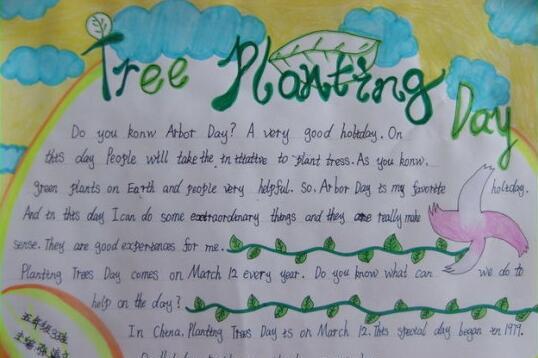 Tree Planting Day
Do you konw Arbor Day? A very good holiday. On
this day People will take the initiative to plant tress. As you konw,
green plants on Earth and people very helpful. So, Arbor Day is my favorite holiday.
And in this day I can do some extraordinary things and they are really make
sense. They are good experiences for me.
Planting Trees Day comes on March 12 every year. Do you know what can we do to
help on the day?
In China, Planting Trees Day is on March 12. This special day began in 1979.
五年级3班